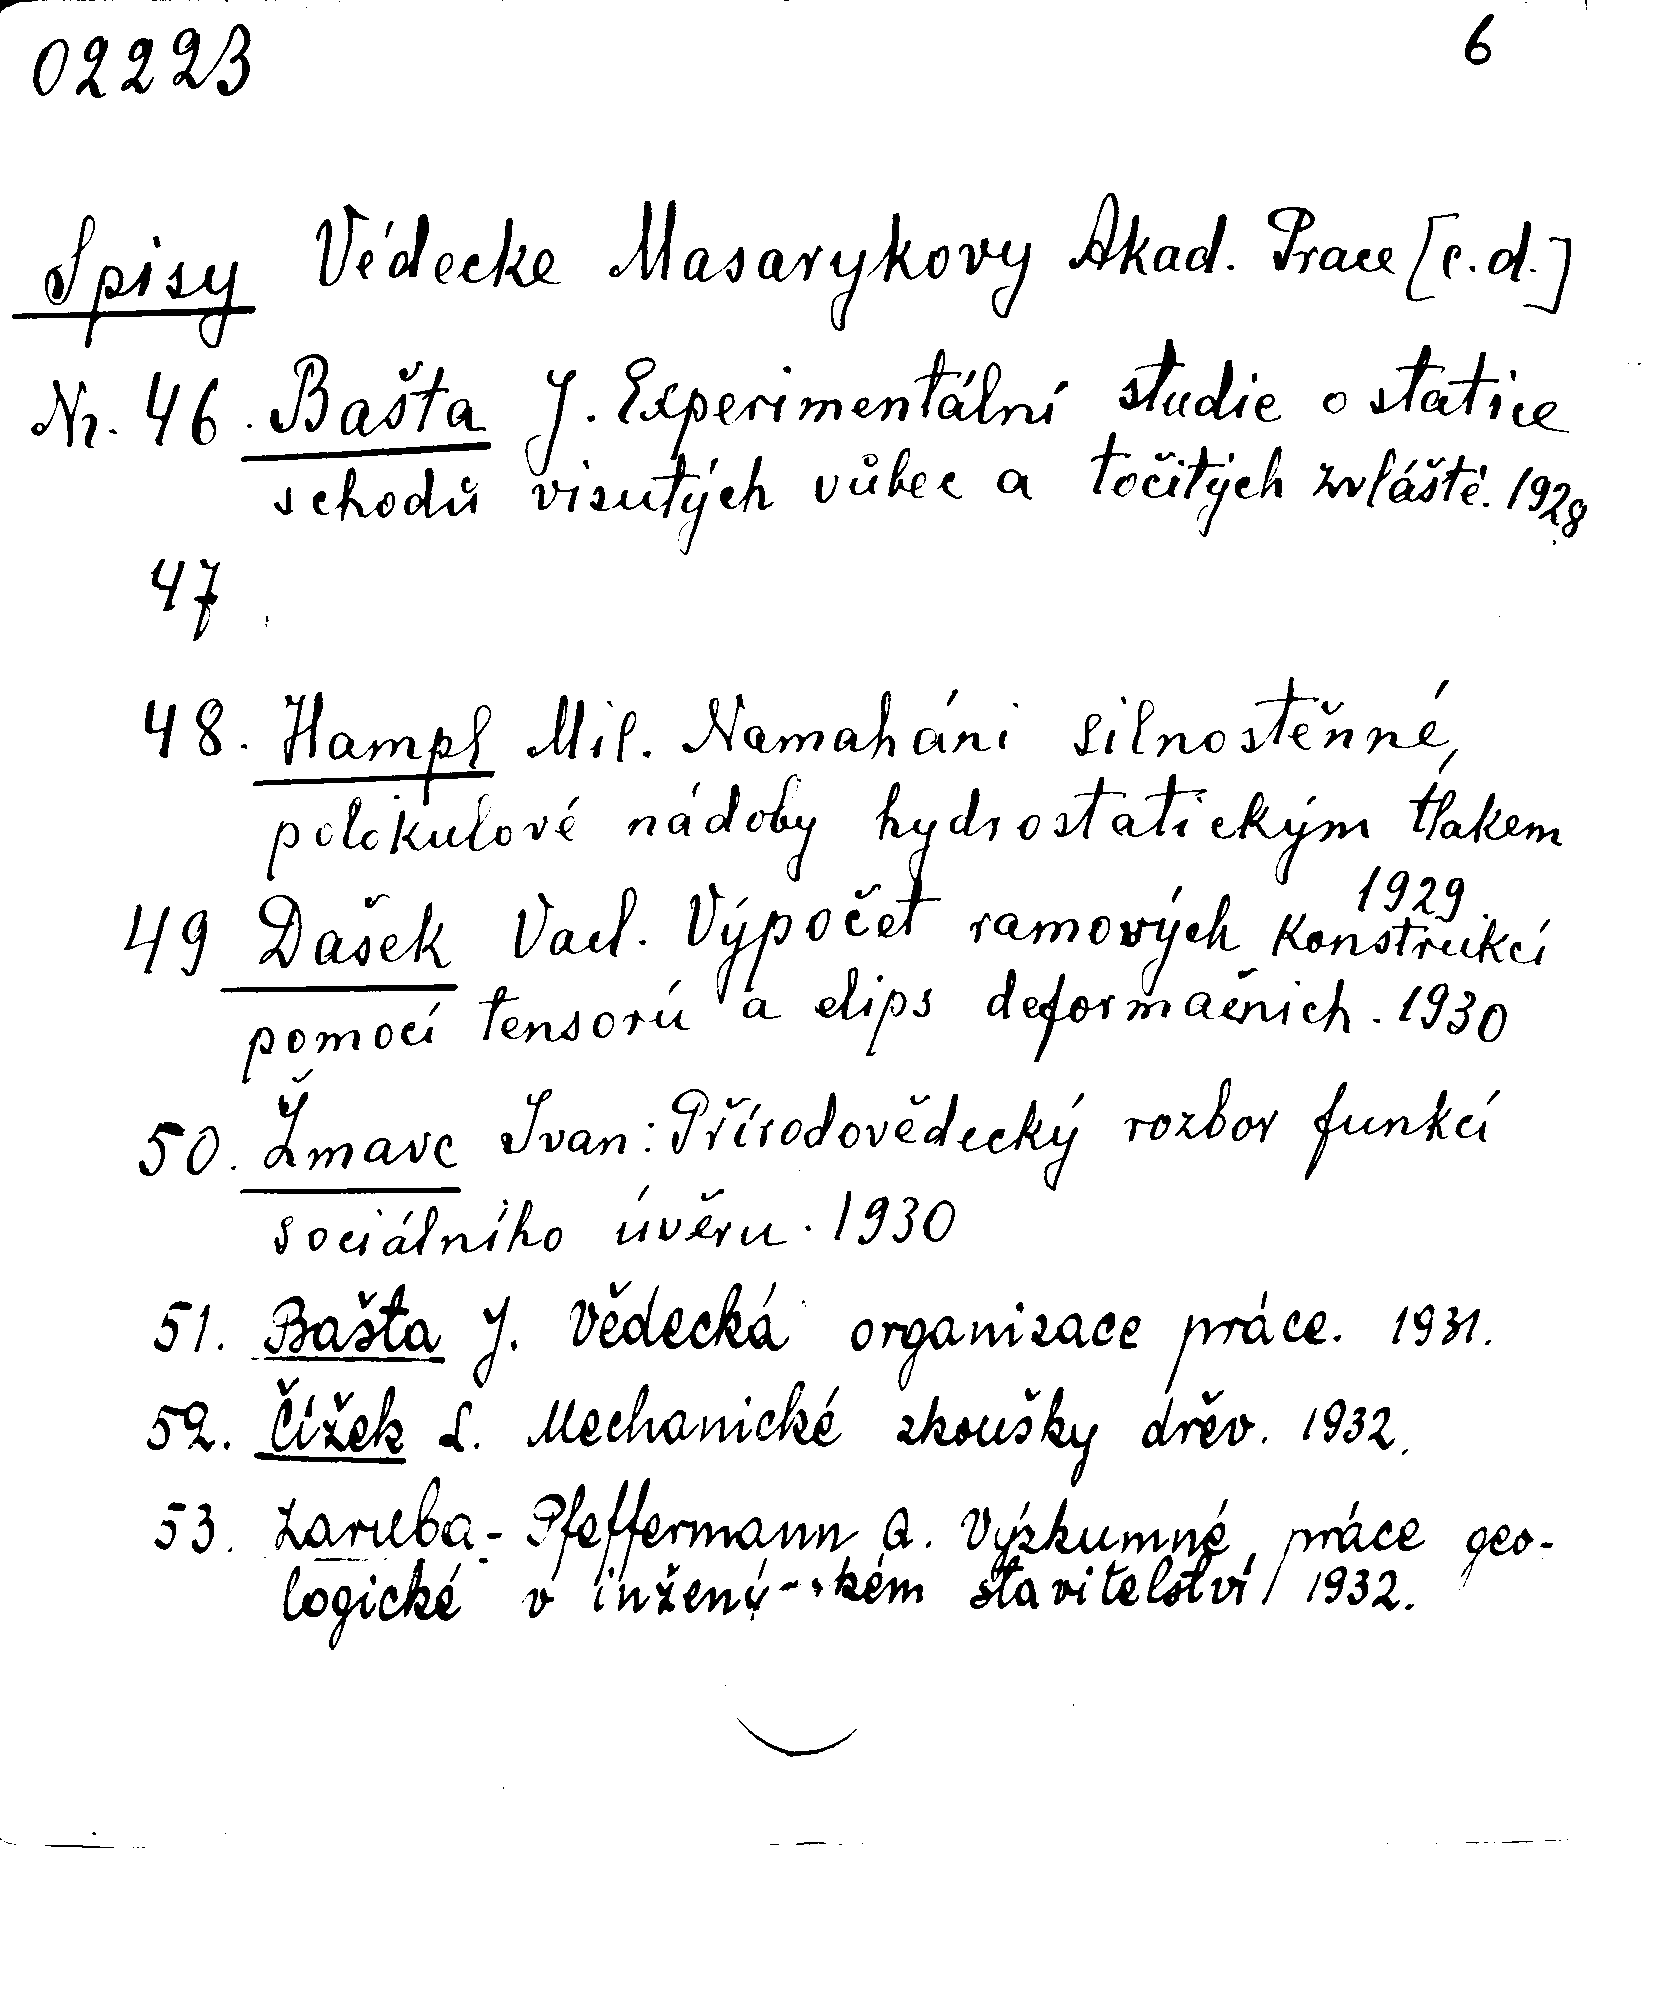 02223 6
Spisy Védecke Masarykovy Akad. Prace [c.d.]
Nr. 46. Bašta J. Experimentální studie o statice
schodů visutých vůbec a točitých zvláště. 1928
47
48. Hampl Mil. Namaháni silnostěnné,
polokulové nádoby hydrostatickým tlakem
1929
49 Dašek Vacl. Výpočet ramových konstrukcí
pomocí tensorú a elips deformačnich. 1930
50. Žmavc Ivan: Přírodovědecký rozbor funkcí
sociálního úvěru. 1930
51. Bašta J. Vědecká organizace práce. 1931.
52. Čížek L. Mechanické zkoušky dřěv. 1932.
53. Zaruba-Pfeffermann Q. Výzkumné práce geo-
logické v stavitelství 1932.